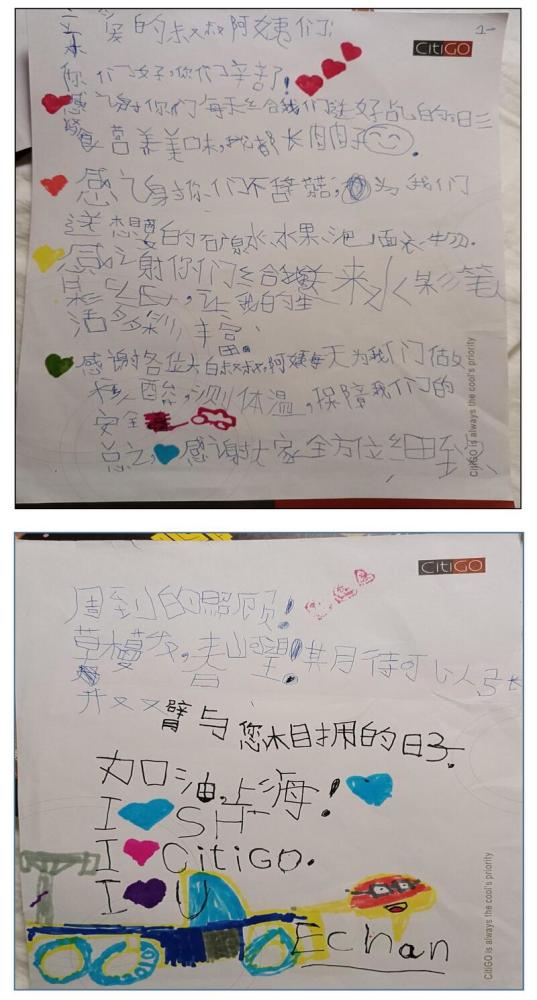 亲爱的叔叔阿姨们:
1-
CitiGO
你们好,你们辛苦了!
感谢你们每天给我们送好吃的,一日三
餐营养美味,我都长肉肉了。
感谢你们不辞辛苦,为我们
送想要的矿泉水、水果、泡面衣物.
感谢你们给我送来水彩笔
,让我的生
活多彩,丰富.
感谢各位大白叔叔,阿姨每天为我们做
核酸,测体温,保障我们的
安全
总之,感谢大家全方位细致
CitiGO is always the cool's priority
CitiGO
周到的照顾!
草木蔓发,春山可望!期待可以
张开双臂与您相拥的日子.
加油,上海!
I SH
I CitiGO.
I U
Echan
CitiGO is always the cool's priority